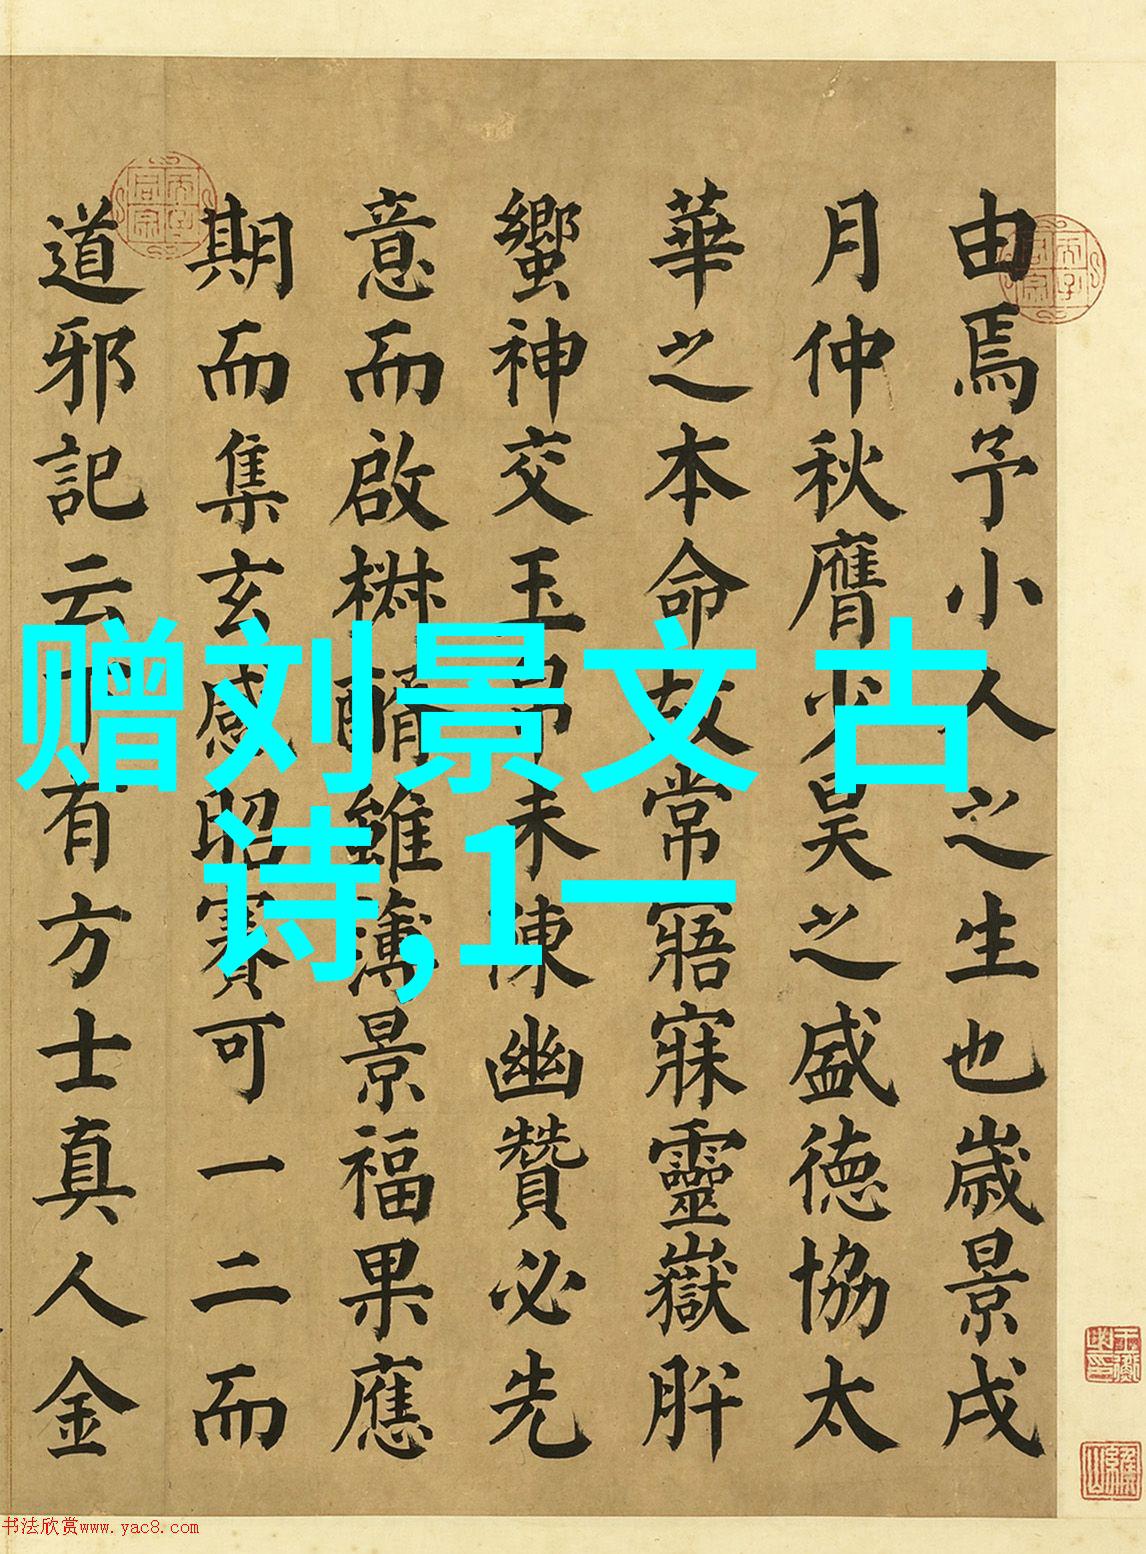 由焉予小人之生也歲景戌
月仲秋膺少昊之盛德協太
華之本命故常寤寐靈嶽肸
蠁神交玉帛未陳幽贊必先
意而啟椒醑雖薄景福果應
期而集玄感昭賽可一二而
道邪記云有方士真人金
赠刘景文 古
诗,1一
书法欣赏www.yac8.com